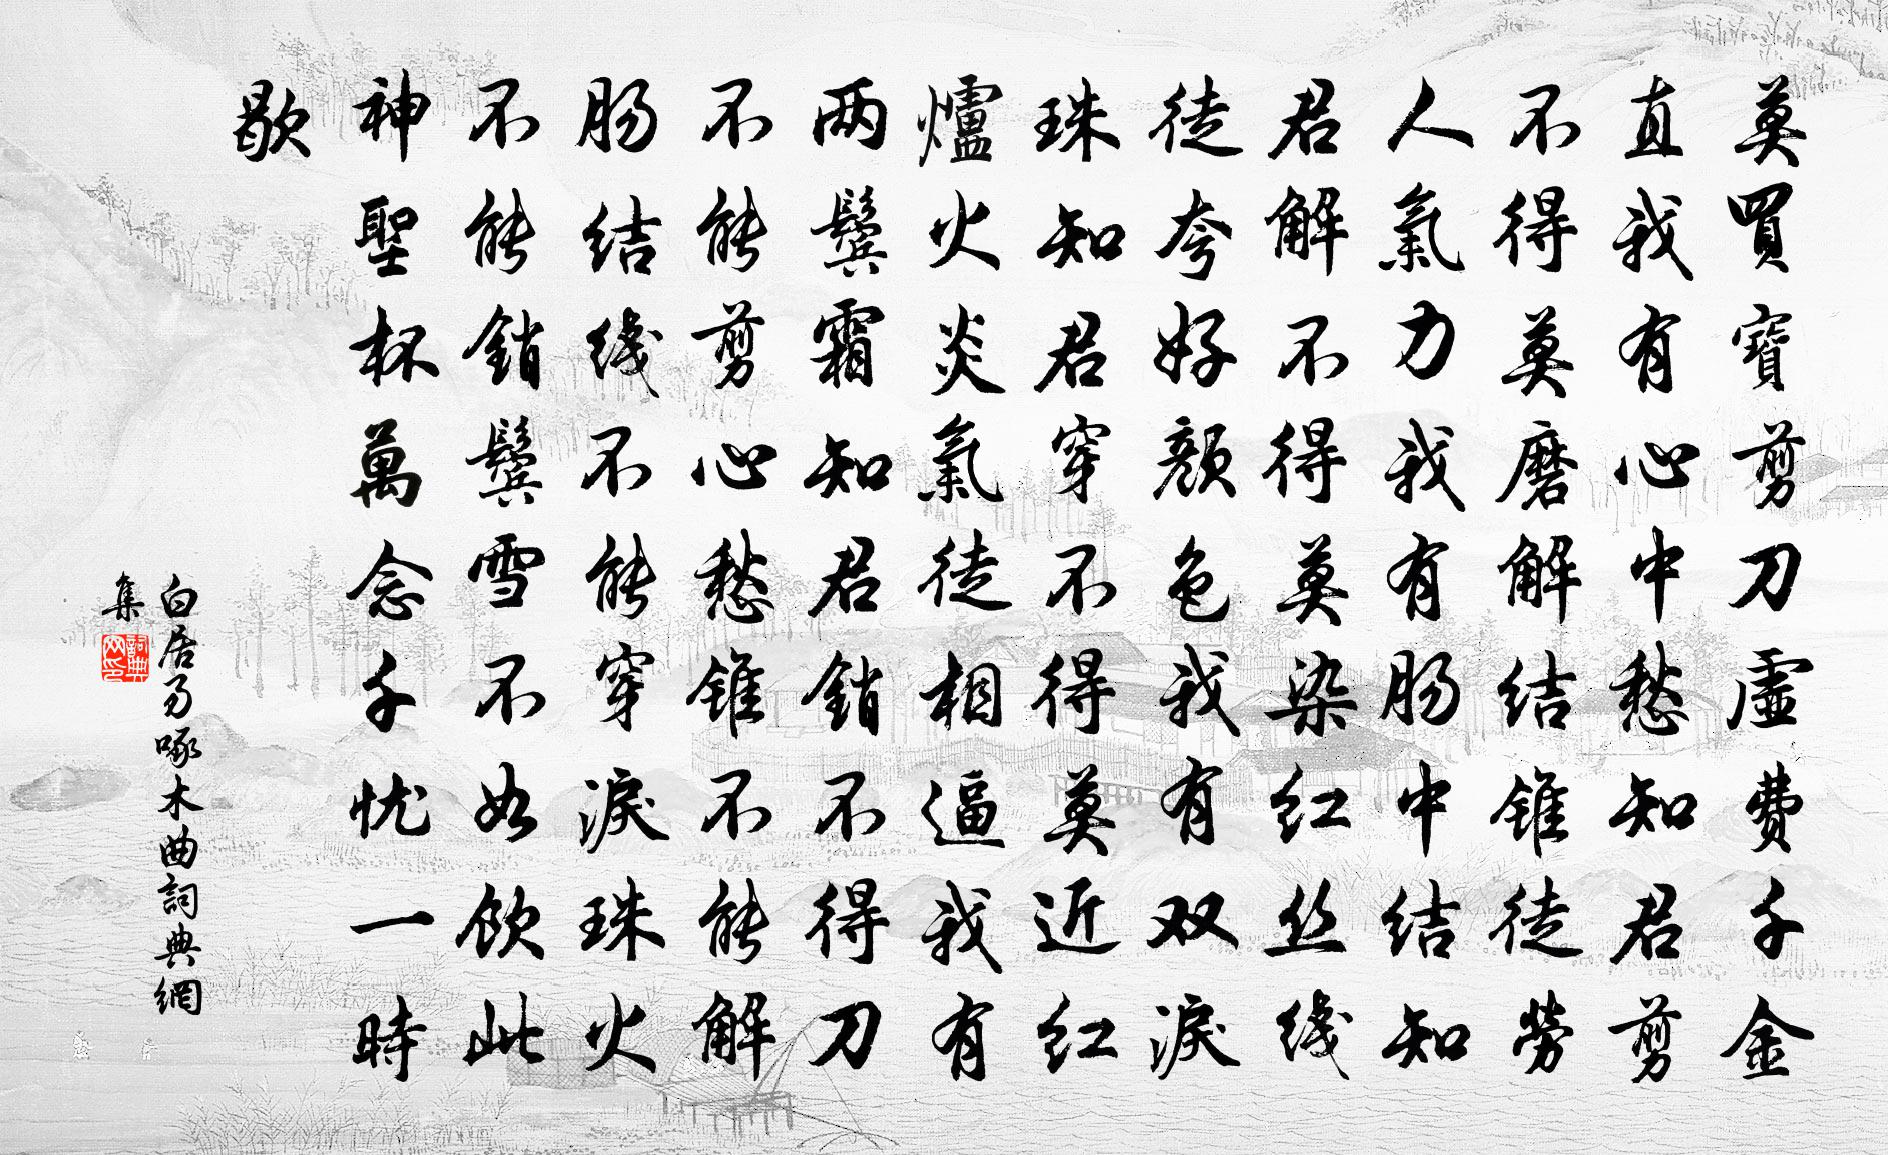 莫買寶剪刀虛費千金
直我有心中愁知君剪
不得莫磨解结錐徒勞
人氣力我有肠中结知
君解不得莫染红丝线
徒夸好颜色我有双淚
珠知君穿不得莫近红
爐火炎氣徒相逼我有
两鬓霜知君銷不得刀
不能剪心愁錐不能解
肠结线不能穿淚珠火
不能銷鬓雪不如饮此
神聖杯萬念千忧一時
歇
白居易啄木曲詞典網
集
詞典网印